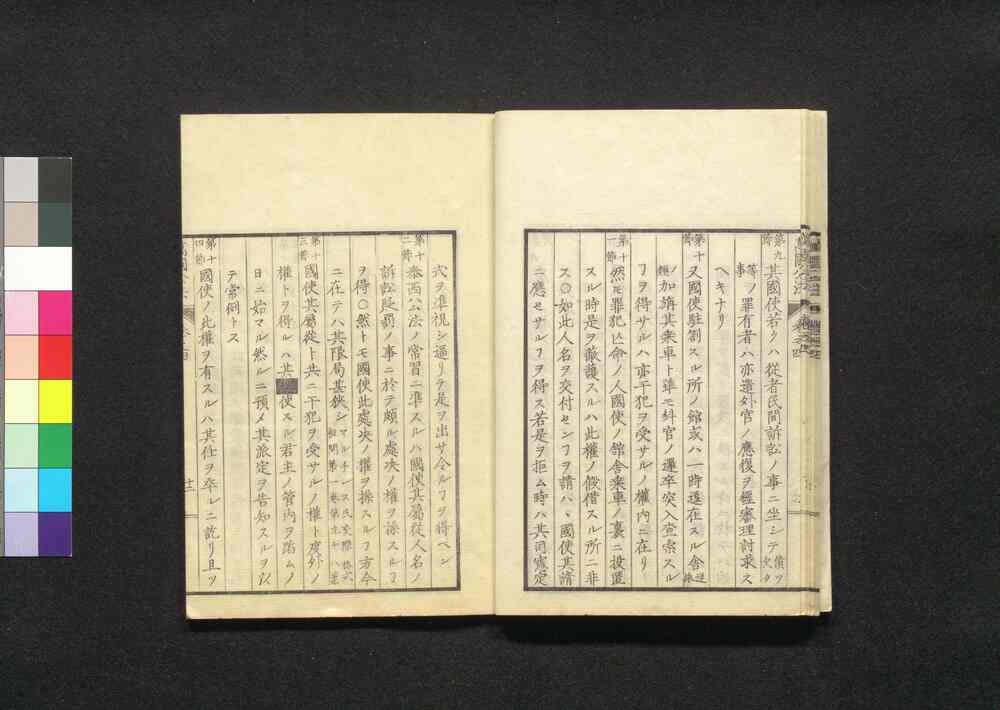 第九節 其國使若クハ從者民間訴訟ノ事ニ坐シテ償ヲ欠タ
等ノ罪有者ハ亦遣外官ノ應復ヲ經審理討求ス
事
ヘキナリ
第十節 又國使駐劄スル所ノ館或ハ一時遷在スル舍
ノ類加旃其乘車ト雖モ糾官ノ邏卒突入查索スル
ヿヲ得サルハ亦干犯ヲ受サルノ權內ニ在リ
第十一節 然モ罪犯亡命ノ人國使ノ館舍乘車ノ裏ニ投置
スル時是ヲ蔽護スルハ此權ノ假借スル所ニ非
ス〇如此人名ヲ交付センヿヲ請ハヽ國使其請
ニ應セサルヿヲ得ス若是ヲ拒ム時ハ其司憲定
式ヲ準視シ逼リテ是ヲ出サ令ルヿヲ得ヘシ
第十二節 泰西公法ノ常習ニ準スルハ國使其屬從人名ノ
訴訟及罰ノ事ニ於テ頗ル處决ノ權ヲ操スルヿ
ヲ得〇然トモ國使此處决ノ權ヲ操スルヿ方今
ニ在テハ其限局甚狹シ マルチンス氏
第十三節 國使其屬從ト共ニ干犯ヲ受サルノ權ト度外ノ
權トヲ得ルハ其 使スル君主ノ管內ヲ蹈ムノ
日ニ始マル然ルニ預メ其派定ヲ告知スルヲ以
テ常例トス
第十四節 國使ノ此權ヲ有スルハ其任ヲ卒ルニ訖リ且ツ